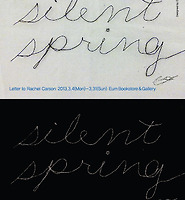 silent
spring
Letter to Rachel Carson 2013.3.4(Mon)-3.31(Sun) Eum Bookstore & Gallery
silent
spring